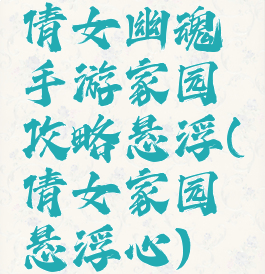 倩女幽魂
手游家园
攻略悬浮(
倩女家园
悬浮心)